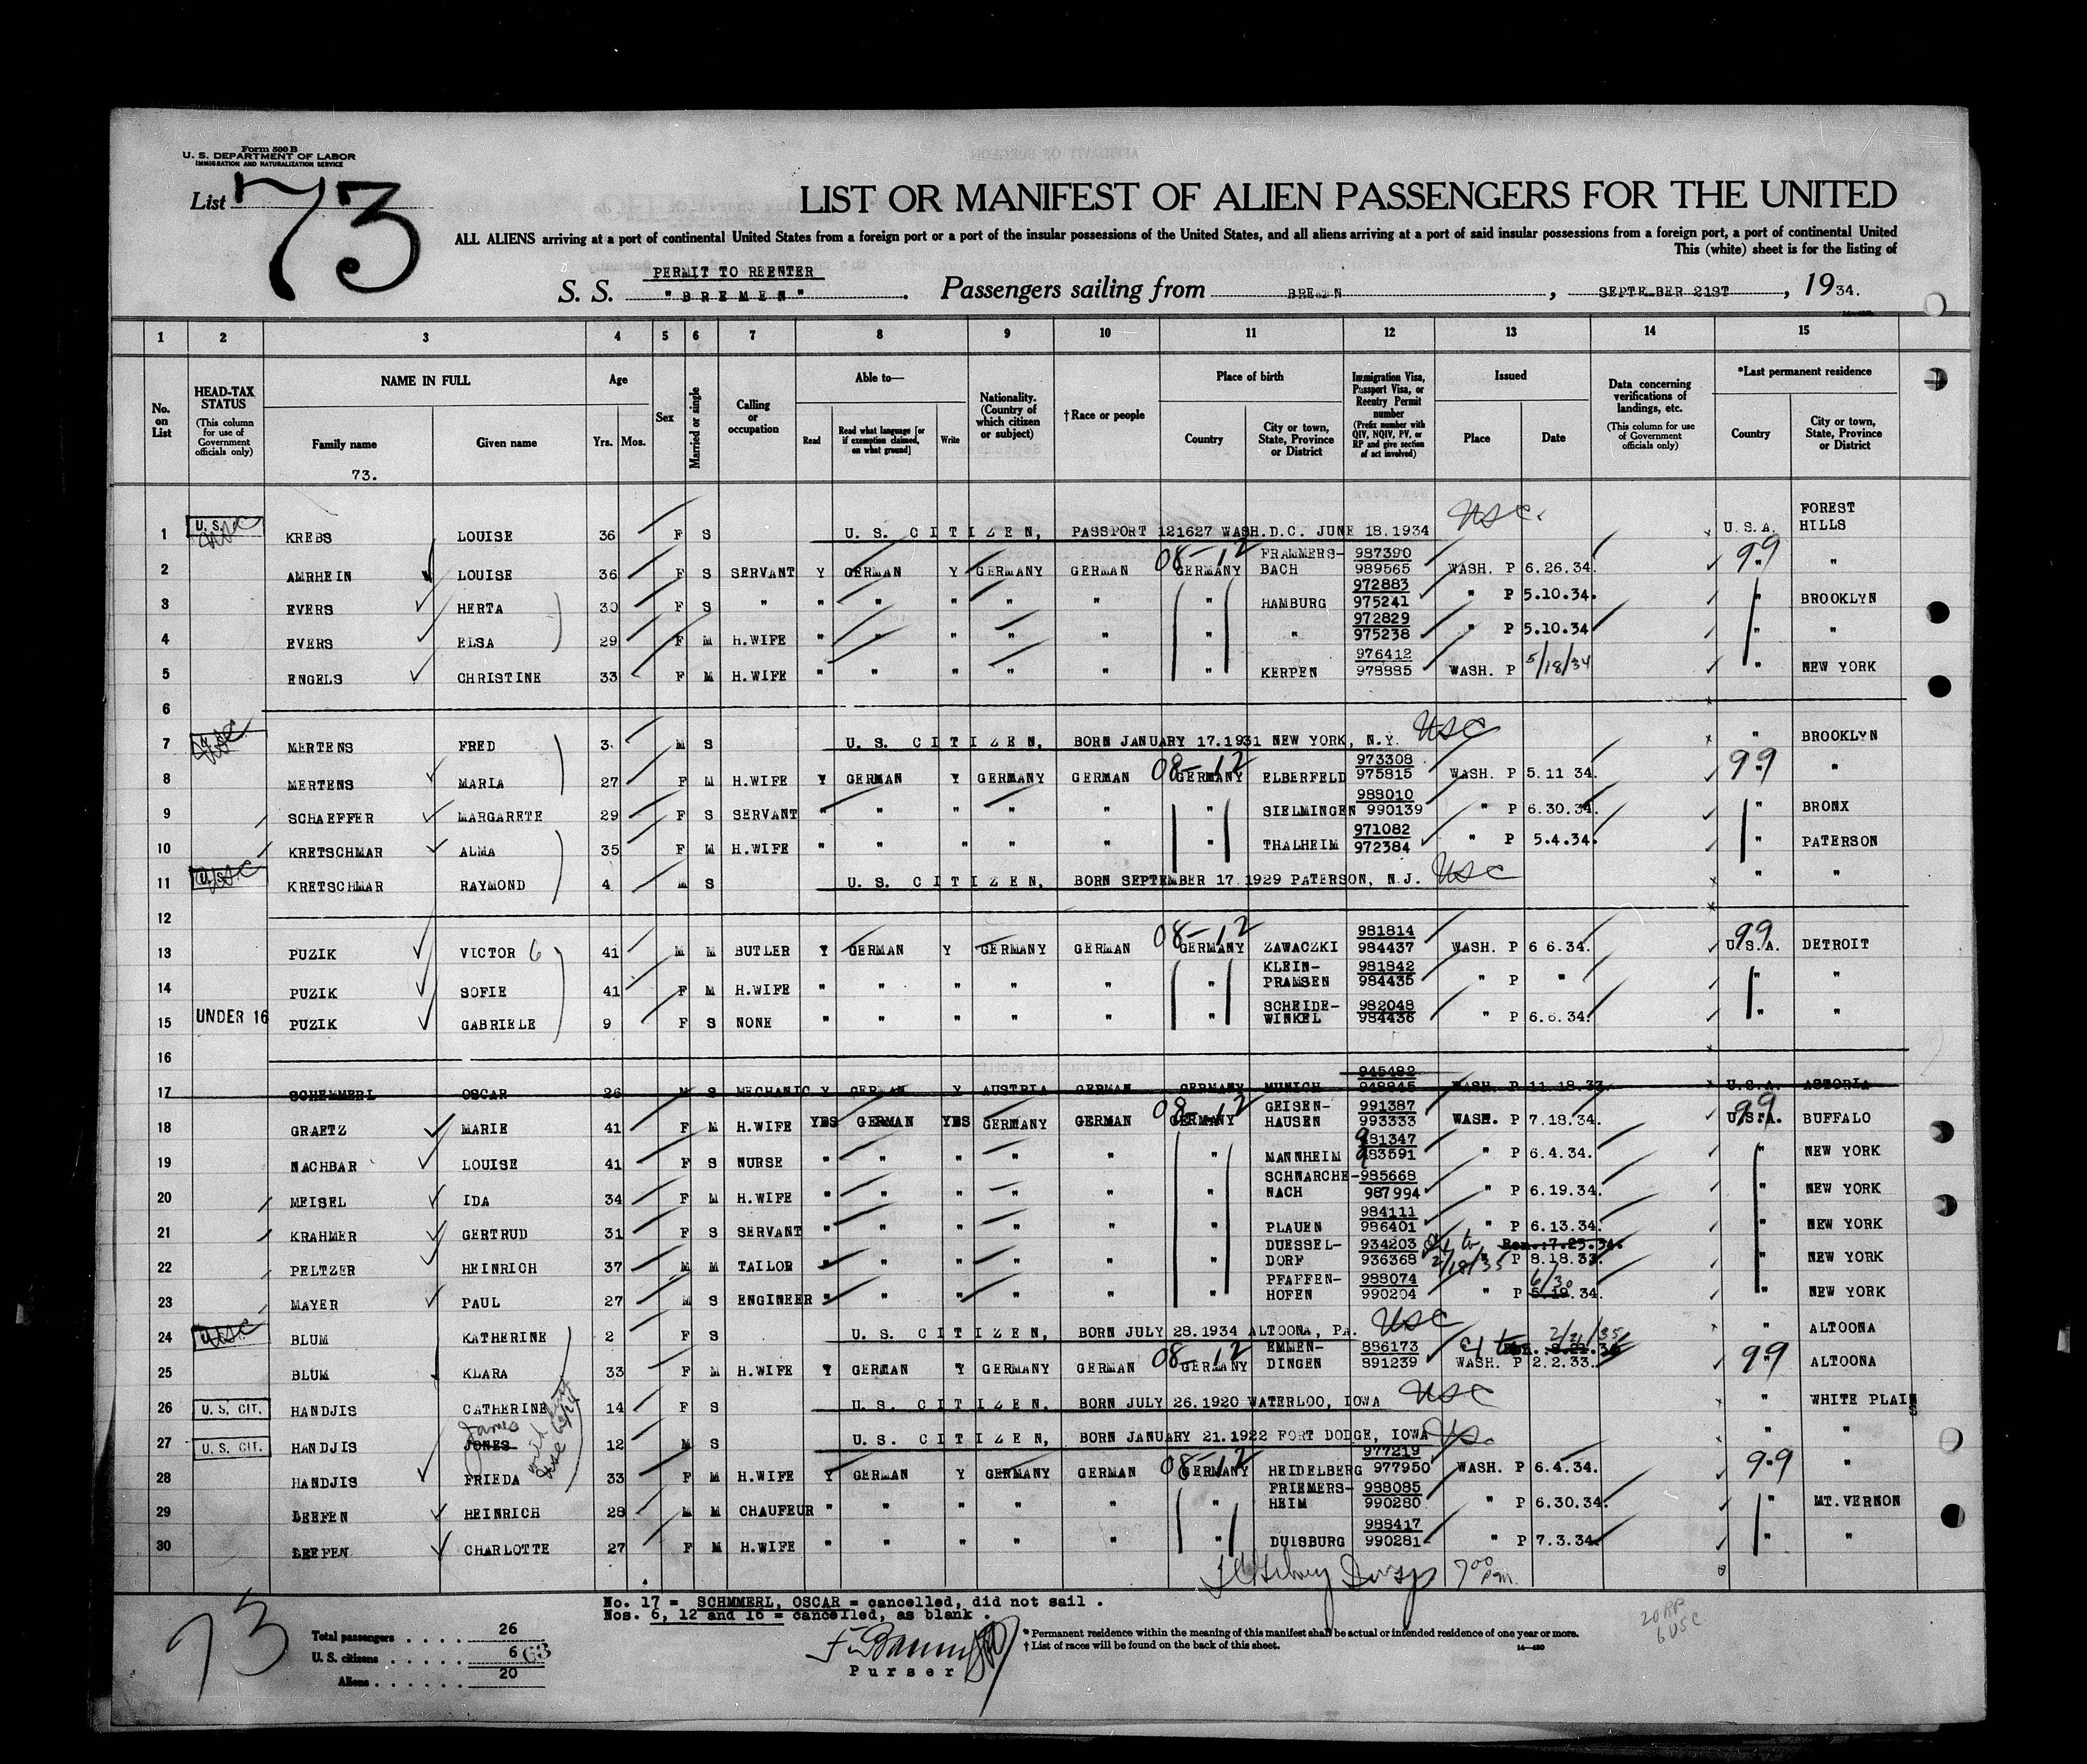 Form 500 B
U. S. DEPARTMENT OF LABOR
IMMIGRATION AND NATURALIZATION SERVICE
List 73
LIST OR MANIFEST OF ALIEN PASSENGERS FOR THE UNITED
ALL ALIENS arriving at a port of continental United States from a foreign port or a port of the insular possessions of the United States, and all aliens arriving at a port of said insular possessions from a foreign port, a port of continental United
This (white) sheet is for the listing of
PERMIT TO REENTER
S. S. "BREMEN". Passengers sailing from BREMEN, SEPTEMBER 21ST, 1934.
1 2 3 4 5 6 7 8 9 10 11 12 13 14 15
No. on List
HEAD-TAX STATUS (This column for use of Government officials only)
NAME IN FULL Family name Given name
73.
Age Yrs. Mos.
Sex
Married or single
Calling or occupation
Able to— Read Read what language [or if exemption claimed, on what ground] Write
Nationality. (Country of which citizen or subject)
†Race or people
Place of birth Country City or town, State, Province or District
Immigration Visa, Passport Visa, or Reentry Permit number (Prefix number with QIV, NQIV, PV, or RP and give section of act involved)
Issued Place Date
Data concerning verifications of landings, etc. (This column for use of Government officials only)
*Last permanent residence Country City or town, State, Province or District
1 U.S. KREBS LOUISE 36 F S U. S. CITIZEN, PASSPORT 121627 WASH.D.C. JUNE 18.1934 USC. U.S.A. FOREST HILLS
2 AMRHEIN LOUISE 36 F S SERVANT Y GERMAN Y GERMANY GERMAN 08-12 GERMANY FRAMMERS-BACH 987390 989565 WASH. P 6.26.34. 99 " "
3 EVERS HERTA 30 F S " " " " " " " HAMBURG 972883 975241 " P 5.10.34. " BROOKLYN
4 EVERS ELSA 29 F M H.WIFE " " " " " " " 972829 975238 " P 5.10.34 " "
5 ENGELS CHRISTINE 33 F M H.WIFE " " " " " " KERPEN 976412 978885 WASH. P 5/18/34 " NEW YORK
6
7 USC MERTENS FRED 3 M S U. S. CITIZEN, BORN JANUARY 17.1931 NEW YORK, N.Y. USC " BROOKLYN
8 MERTENS MARIA 27 F M H.WIFE Y GERMAN Y GERMANY GERMAN 08-12 GERMANY ELBERFELD 973308 975815 WASH. P 5.11 34. 99 " "
9 SCHAEFFER MARGARETE 29 F S SERVANT " " " " " " SIELMINGEN 988010 990139 " P 6.30.34. " BRONX
10 KRETSCHMAR ALMA 35 F M H.WIFE " " " " " " THALHEIM 971082 972384 " P 5.4.34. " PATERSON
11 USC KRETSCHMAR RAYMOND 4 M S U. S. CITIZEN, BORN SEPTEMBER 17.1929 PATERSON, N.J. USC " "
12
13 PUZIK VICTOR 6 41 M M BUTLER Y GERMAN Y GERMANY GERMAN 08-12 GERMANY ZAWACZKI 981814 984437 WASH. P 6 6.34. 99 U.S.A. DETROIT
14 PUZIK SOFIE 41 F M H.WIFE " " " " " " KLEIN-PRAMSEN 981842 984435 " P " " "
15 UNDER 16 PUZIK GABRIELE 9 F S NONE " " " " " " SCHEIDE-WINKEL 982048 984436 " P 6.6.34. " "
16
17 SCHEMMERL OSCAR 26 M S MECHANIC Y GERMAN Y AUSTRIA GERMAN GERMANY MUNICH 945482 948845 WASH. P 11.18.33. U.S.A. ASTORIA
18 GRAETZ MARIE 41 F M H.WIFE YES GERMAN YES GERMANY GERMAN 08-12 GERMANY GEISEN-HAUSEN 991387 993333 WASH. P 7.18.34. 99 U.S.A. BUFFALO
19 NACHBAR LOUISE 41 F S NURSE " " " " " " MANNHEIM 981347 983591 " P 6.4.34. " NEW YORK
20 MEISEL IDA 34 F M H.WIFE " " " " " " SCHNARCHE-NACH 985668 987994 " P 6.19.34. " NEW YORK
21 KRAHMER GERTRUD 31 F S SERVANT " " " " " " PLAUEN 984111 986401 " P 6.13.34. " NEW YORK
22 PELTZER HEINRICH 37 M M TAILOR " " " " " " DUESSEL-DORF 934203 936368 2/18/35 Ren.:7.25.34. P 8.18.33. " NEW YORK
23 MAYER PAUL 27 M S ENGINEER " " " " " " PFAFFEN-HOFEN 988074 990204 " P 6/30 5.19.34. " NEW YORK
24 USC BLUM KATHERINE 2 F S U. S. CITIZEN, BORN JULY 28.1934 ALTOONA, PA. USC " ALTOONA
25 BLUM KLARA 33 F M H.WIFE Y GERMAN Y GERMANY GERMAN 08-12 GERMANY EMMEN-DINGEN 886173 891239 WASH. P 2.2.33. 2/21/35 99 " ALTOONA
26 U. S. CIT. HANDJIS CATHERINE 14 F S U. S. CITIZEN, BORN JULY 26.1920 WATERLOO, IOWA USC " WHITE PLAINS
27 U. S. CIT. HANDJIS JONES James 12 M S U. S. CITIZEN, BORN JANUARY 21.1922 FORT DODGE, IOWA " "
28 HANDJIS FRIEDA 33 F M H.WIFE Y GERMAN Y GERMANY GERMAN 08-12 GERMANY HEIDELBERG 977219 977950 WASH. P 6.4.34. 99 " "
29 LEEFEN HEINRICH 28 M M CHAUFEUR " " " " " " FRIEMERS-HEIM 988085 990280 " P 6.30.34. " MT.VERNON
30 LEEFEN CHARLOTTE 27 F M H.WIFE " " " " " " DUISBURG 988417 990281 " P 7.3.34. " "
7 00 p.m.
No. 17 = SCHMMERL, OSCAR = cancelled, did not sail .
Nos. 6, 12 and 16 = cancelled, as blank .
73
Total passengers 26
U. S. citizens 6
Aliens 20
Purser
* Permanent residence within the meaning of this manifest shall be actual or intended residence of one year or more.
† List of races will be found on the back of this sheet.
14—430
20 RP
6 USC